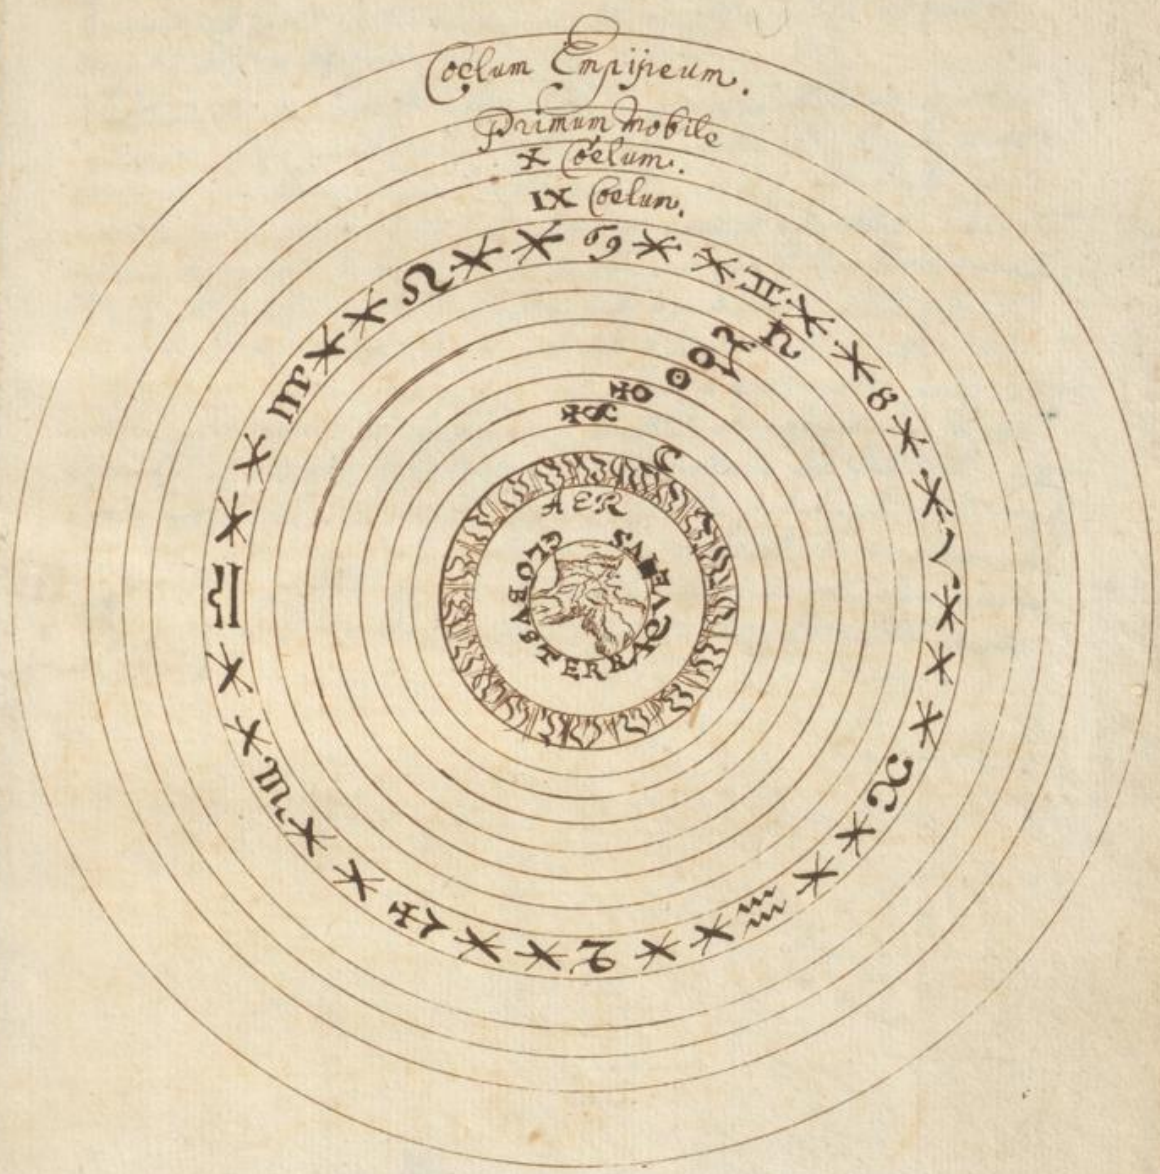 Coelum Empijreum.
Primum Mobile
X Coelum.
IX Coelum.
♋ ♊ ♉ ♈ ♓ ♒ ♑ ♐ ♏ ♎ ♍ ♌
♄
♃
♂
☉
♀
☿
☽
AER
GLOBUS TERRAQVEVS